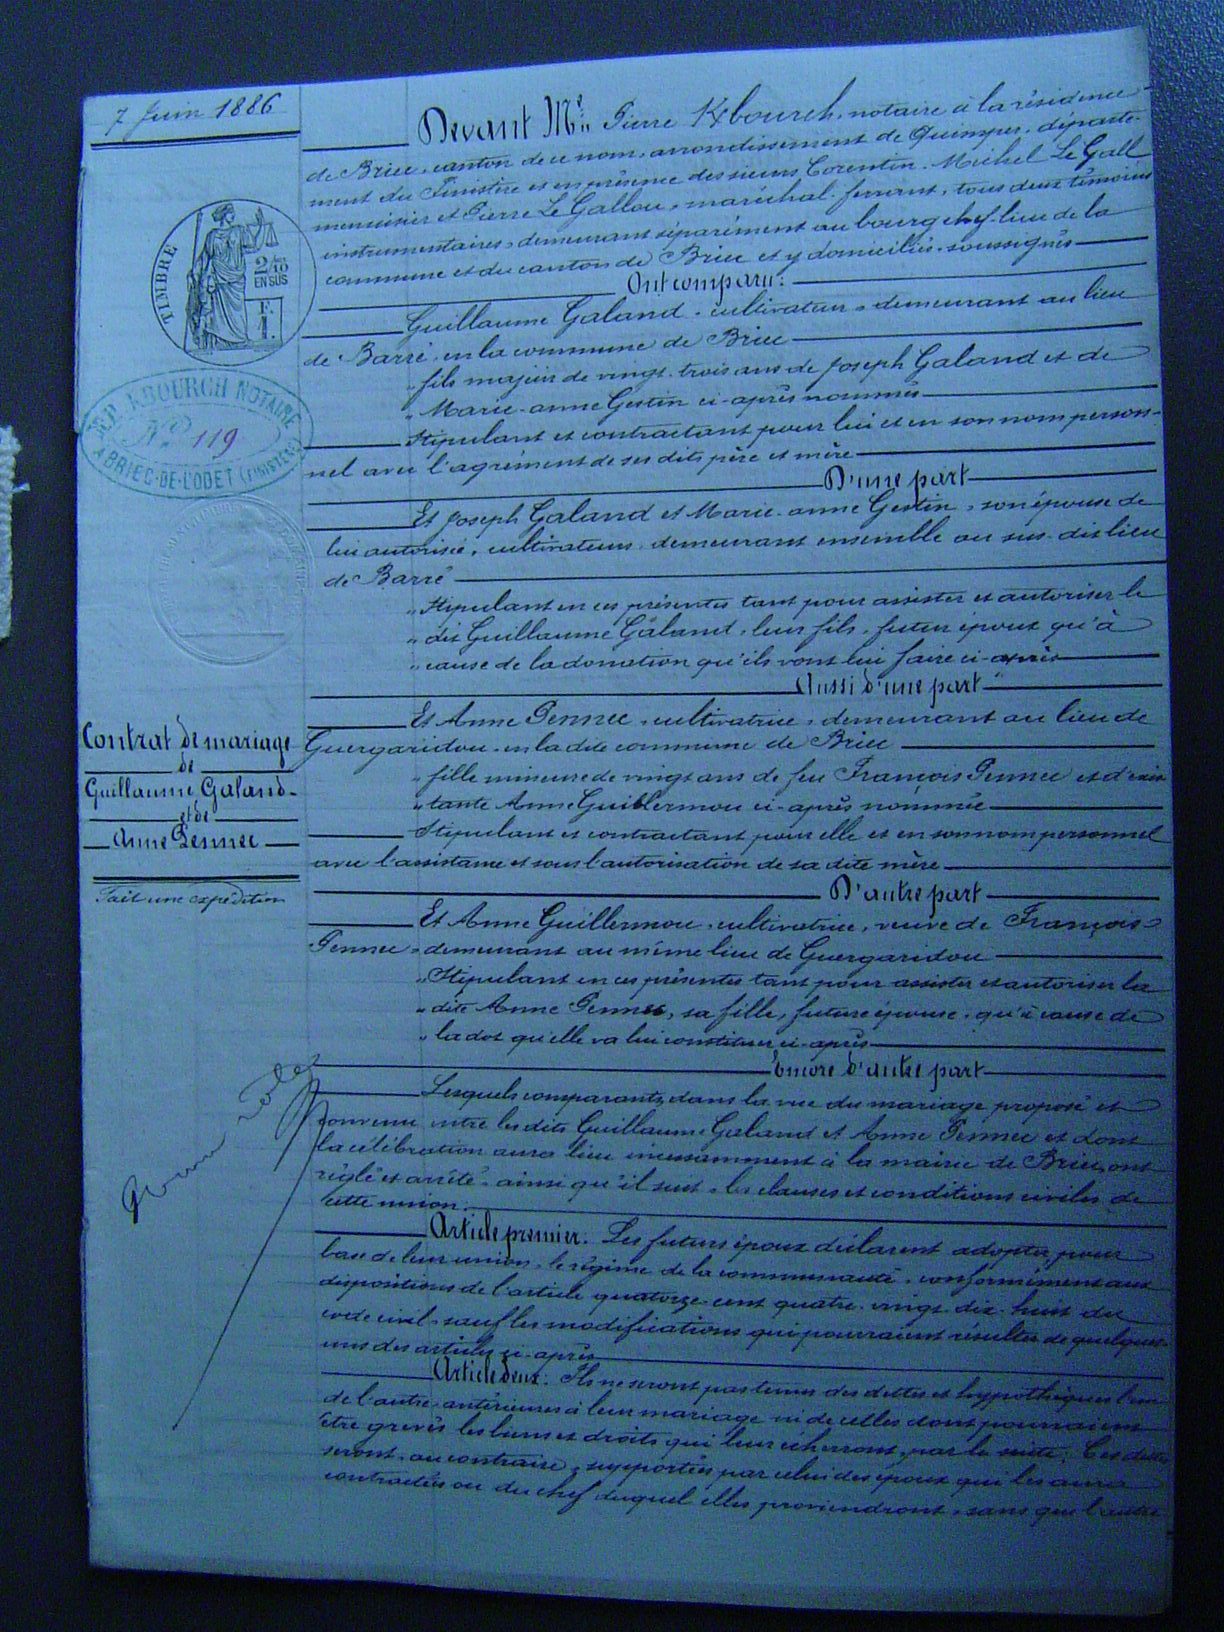 7 Juin 1886
TIMBRE
2/10
EN SUS
F.
1.
KBOURCH NOTAIRE
N° 119
A BRIEC-DE-L'ODET (FINISTÈRE)
Contrat de mariage
de
Guillaume Galand
et de
Anne Pennec
Fait une expédition
Devant Me Pierre Kbourch, notaire à la résidence
de Briec, canton de ce nom, arrondissement de Quimper, départe-
ment du Finistère et en présence des sieurs Corentin Michel Le Gall
menuisier et Pierre Le Gallou, maréchal-ferrant, tous deux témoins
instrumentaires, demeurant séparément au bourg chef-lieu de la
commune et du canton de Briec et y domiciliés, soussignés
Ont comparu:
Guillaume Galand, cultivateur, demeurant au lieu
de Barré, en la commune de Briec
" fils majeur de vingt-trois ans de Joseph Galand et de
" Marie-anne Gestin ci-après nommés
Stipulant et contractant pour lui et en son nom person-
nel avec l'agrément de ses dits père et mère
D'une part
Et Joseph Galand et Marie-anne Gestin, son épouse de
lui autorisée, cultivateurs, demeurant ensemble au sus-dit lieu
de Barré
" Stipulant en ces présentes tant pour assister et autoriser le
" dit Guillaume Galand, leur fils, futur époux qu'à
" cause de la donation qu'ils vont lui faire ci-après
Aussi d'une part
Et Anne Pennec, cultivatrice, demeurant au lieu de
Guergaridou, en la dite commune de Briec
" fille mineure de vingt ans de feu François Pennec et d'exis-
" tante Anne Guillermou ci-après nommée
Stipulant et contractant pour elle et en son nom personnel
avec l'assistance et sous l'autorisation de sa dite mère
D'autre part
Et Anne Guillermou, cultivatrice, veuve de François
Pennec, demeurant au même lieu de Guergaridou
" Stipulant en ces présentes tant pour assister et autoriser la
" dite Anne Pennec, sa fille, future épouse, qu'à cause de
" la dot qu'elle va lui constituer ci-après
Encore d'autre part
Lesquels comparants, dans la vue du mariage proposé et
convenu entre les dits Guillaume Galand et Anne Pennec et dont
la célébration aura lieu incessamment à la mairie de Briec, ont
réglé et arrêté, ainsi qu'il suit, les clauses et conditions civiles de
cette union.
Article premier. Les futurs époux déclarent adopter, pour
base de leur union, le régime de la communauté, conformément aux
dispositions de l'article quatorze cent quatre-vingt-dix-huit du
code civil, sauf les modifications qui pourraient résulter de quelques-
uns des articles ci-après
Article deux. Ils ne seront pas tenus des dettes et hypothèques l'un
de l'autre, antérieures à leur mariage ni de celles dont pourraient
être grevés les biens et droits qui leur écherront, par la suite; Ces dettes
seront, au contraire, supportées par celui des époux qui les aura
contractées ou du chef duquel elles proviendront, sans que l'autre